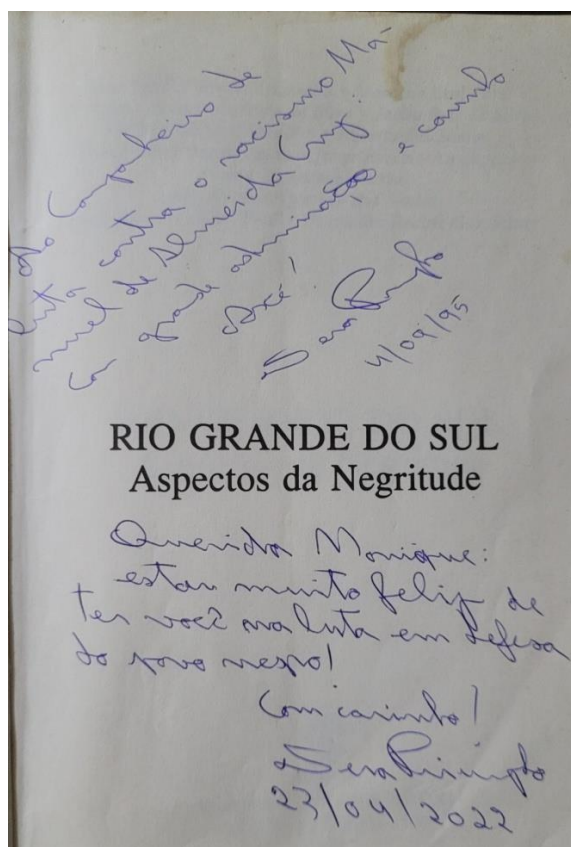 Ao Companheiro de
luta contra o racismo Ma-
nuel de Almeida Cruz:
Com grande admiração e carinho
Axé!
Vera
4/09/95
RIO GRANDE DO SUL
Aspectos da Negritude
Querida Monique:
estou muito feliz de
ter você na luta em defesa
do povo negro!
Com carinho!
Vera
23/04/2022